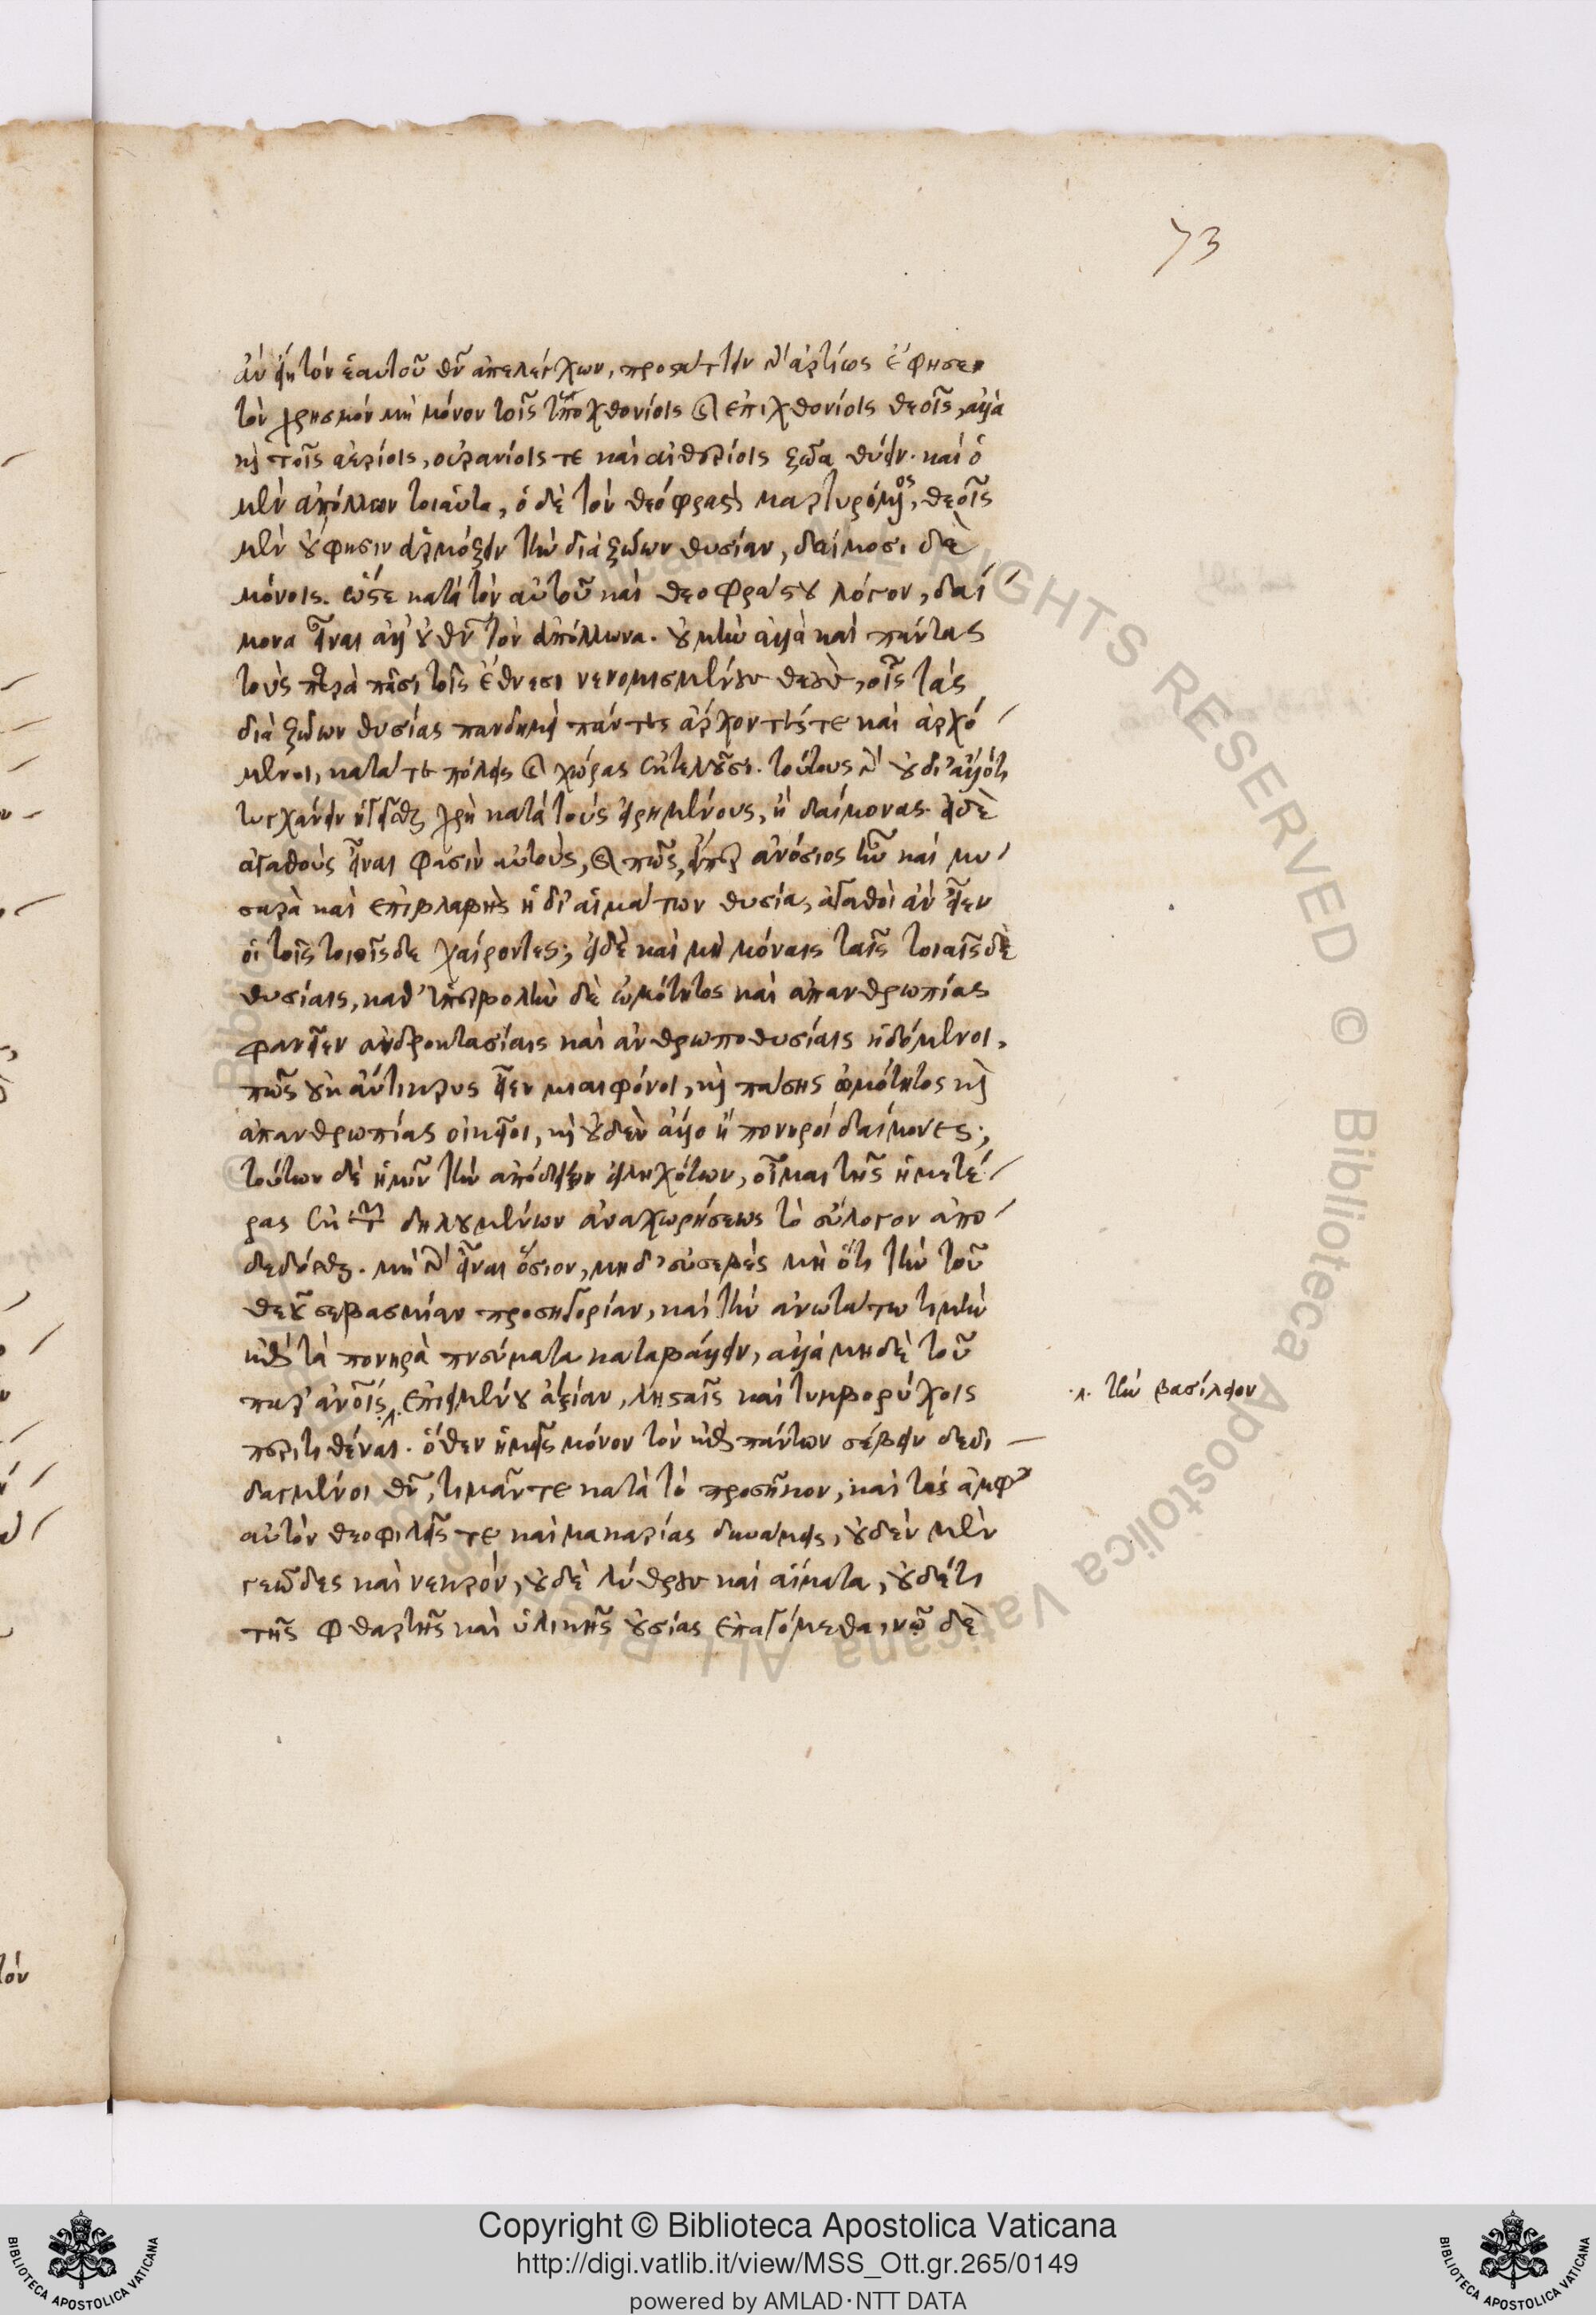 73
ἂν εἴη τὸν ἑαυτοῦ θν͂ ἀπελέγχων, προσάττειν δ' ἀρτίως ἔφησεν
τὸν χρησμὸν μὴ μόνον τοῖς ὑποχθονίοις καὶ ἐπιχθονίοις θεοῖς, ἀλλὰ
καὶ τοῖς ἀερίοις, οὐρανίοις τε καὶ αἰθερίοις ζῶα θύειν. καὶ ὁ
μὲν ἀπόλλων τοιαῦτα, ὁ δὲ τὸν θεόφραστον μαρτυρόμενος, θεοῖς
μὲν οὔ φησιν ἁρμόζειν τὴν διὰ ζώων θυσίαν, δαίμοσι δὲ
μόνοις. ὥστε κατὰ τὸν αὐτοῦ καὶ θεοφράστου λόγον, δαί
μονα εἶναι ἀλλ' οὐ θν͂ τὸν ἀπόλλωνα. οὐ μὴν ἀλλὰ καὶ πάντας
τοὺς παρὰ πᾶσι τοῖς ἔθνεσι νενομισμένους θεοὺς, οἷς τὰς
διὰ ζώων θυσίας πανδημεὶ πάντες ἄρχοντές τε καὶ ἀρχό
μενοι, κατά τε πόλεις καὶ χώρας ἐκτελοῦσι. τούτους γὰρ οὐδ' ἄλλό τι
τυγχάνειν ἡγεῖσθαι χρὴ κατὰ τοὺς εἰρημένους, ἢ δαίμονας. εἰ δὲ
ἀγαθοὺς εἶναι φασὶν αὐτοὺς, καὶ πῶς, εἴπερ ἀνόσιος ἦν καὶ μυ
σαρὰ καὶ ἐπιβλαβὴς ἡ δι' αἱμάτων θυσία, ἀγαθοὶ ἂν εἶεν
οἱ τοῖς τοιοῖσδε χαίροντες; εἰ δὲ καὶ μὴ μόναις ταῖς τοιαῖσδε
θυσίαις, καθ' ὑπερβολὴν δὲ ὠμότητος καὶ ἀπανθρωπίας
φανεῖεν ἀνδροκτασίαις καὶ ἀνθρωποθυσίαις ἡδόμενοι,
πῶς οὐκ ἄντικρυς εἶεν μιαιφόνοι, καὶ πάσης ὠμότητος καὶ
ἀπανθρωπίας οἰκεῖοι, καὶ οὐδὲν ἄλλο ἢ πονηροὶ δαίμονες;
τούτων δὲ ἡμῖν τὴν ἀπόδειξιν εἰληχότων, οἶμαι τῆς ἡμετέ
ρας ἐκ τῶν δηλουμένων ἀναχωρήσεως τὸ εὔλογον ἀπο
δεδόσθαι. μὴ γὰρ εἶναι ὅσιον, μηδ' εὐσεβὲς μὴ ὅτι τὴν τοῦ
θεοῦ σεβασμίαν προσηγορίαν, καὶ τὴν ἀνωτάτω τιμὴν
κατὰ τὰ πονηρὰ πνεύματα καταβάλλειν, ἀλλὰ μηδὲ τοῦ
παρ' ἀνοῖς .λ. ἐπὶ μένου ἀξίαν, λησταῖς καὶ τυμβωρύχοις
περιτιθέναι. ὅθεν ἡμεῖς μόνον τὸν κατὰ πάντων σέβειν δεδι
δαγμένοι θν͂, τιμᾶν τε κατὰ τὸ προσῆκον, καὶ τὰς ἀμφ'
αὐτὸν θεοφιλεῖς τε καὶ μακαρίας δυνάμεις, οὐδὲν μὲν
γεῶδες καὶ νεκρόν, οὐδὲ λύθρον καὶ αἵματα, οὐδέ τι
τῆς φθαρτῆς καὶ ὑλικῆς οὐσίας ἐπαγόμεθα, νῷ δὲ
.λ. τὴν βασίλειον
τὸν
Copyright © Biblioteca Apostolica Vaticana
http://digi.vatlib.it/view/MSS_Ott.gr.265/0149
powered by AMLAD·NTT DATA
BIBLIOTECA APOSTOLICA VATICANA
BIBLIOTECA APOSTOLICA VATICANA
© Biblioteca Apostolica Vaticana ALL RIGHTS RESERVED